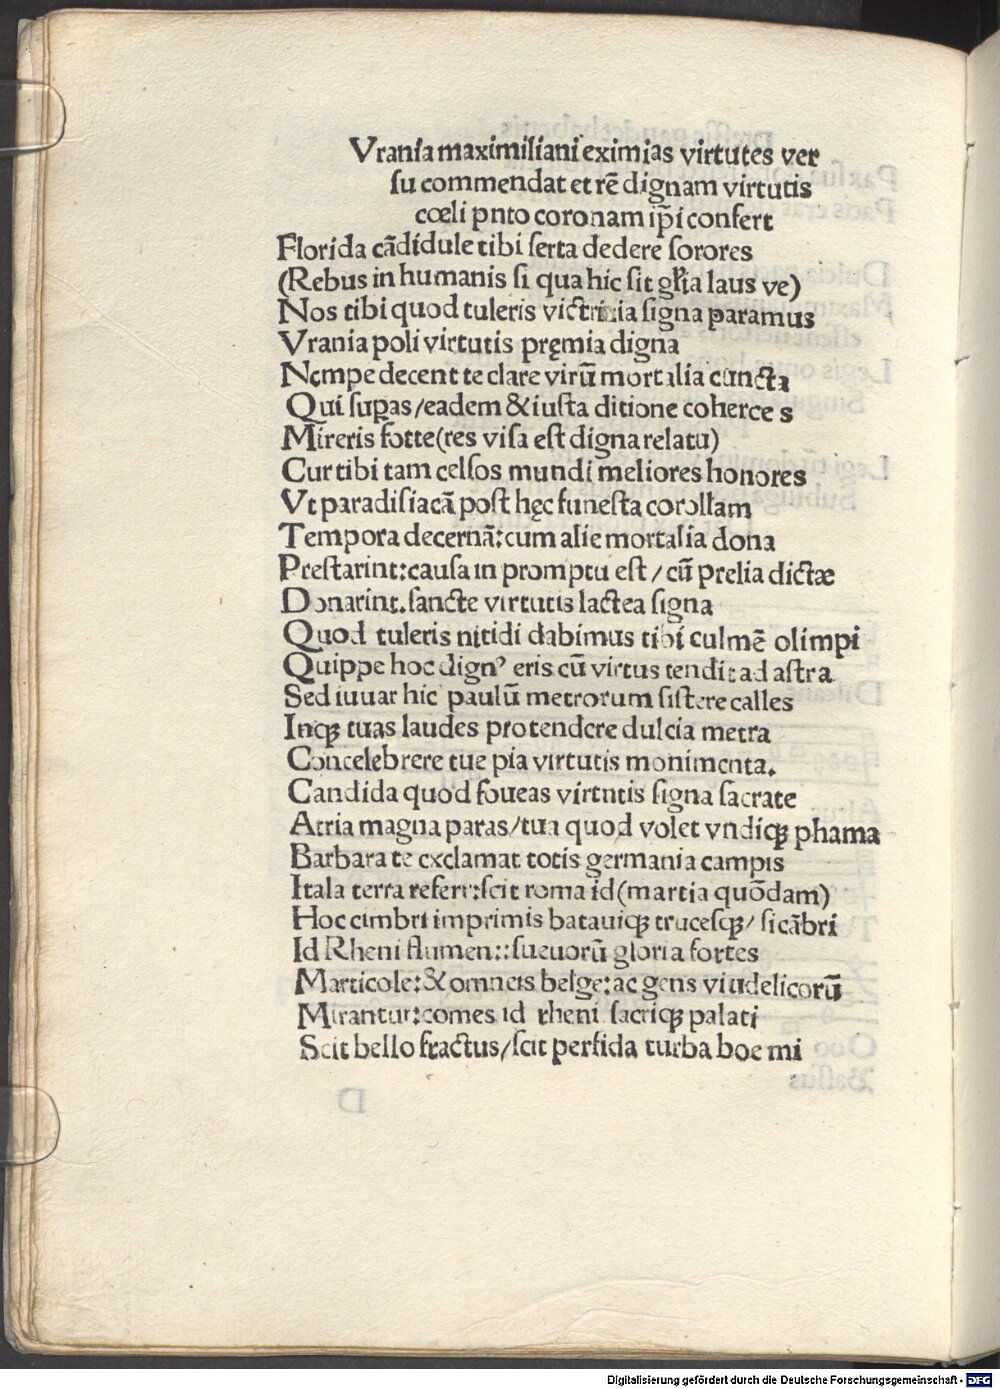 Vrania maximiliani eximias virtutes ver
su commendat et rē dignam virtutis
cœli pnto coronam ip̄i confert
Florida cādidule tibi serta dedere sorores
(Rebus in humanis si qua hic sit gl̄ia laus ve)
Nos tibi quod tuleris victricia signa paramus
Vrania poli virtutis pręmia digna
Nempe decent te clare virū mortalia cuncta
Qui supas/eadem & iusta ditione coherce s
Mireris fotte (res visa est digna relatu)
Cur tibi tam celsos mundi meliores honores
Vt paradisiacā post hęc funesta corollam
Tempora decernā:cum alie mortalia dona
Prestarint:causa in promptu est/cū prelia dictæ
Donarint.sancte virtutis lactea signa
Quod tuleris nitidi dabimus tibi culmē olimpi
Quippe hoc dignꝰ eris cū virtus tendit ad astra
Sed iuuar hic paulū metrorum sistere calles
Inqꝫ tuas laudes protendere dulcia metra
Concelebrere tue pia virtutis monimenta.
Candida quod foueas virtntis signa sacrate
Atria magna paras/tua quod volet vndiqꝫ phama
Barbara te exclamat totis germania campis
Itala terra refert:scit roma id (martia quōdam)
Hoc cimbri imprimis batauiqꝫ trucesqꝫ/sicābri
Id Rheni flumen::sueuorū gloria fortes
Marticole:& omneis belge:ac gens viudelicorū
Mirantur:comes id rheni sacriqꝫ palati
Scit bello fractus/scit perfida turba boe mi
Digitalisierung gefördert durch die Deutsche Forschungsgemeinschaft - DFG